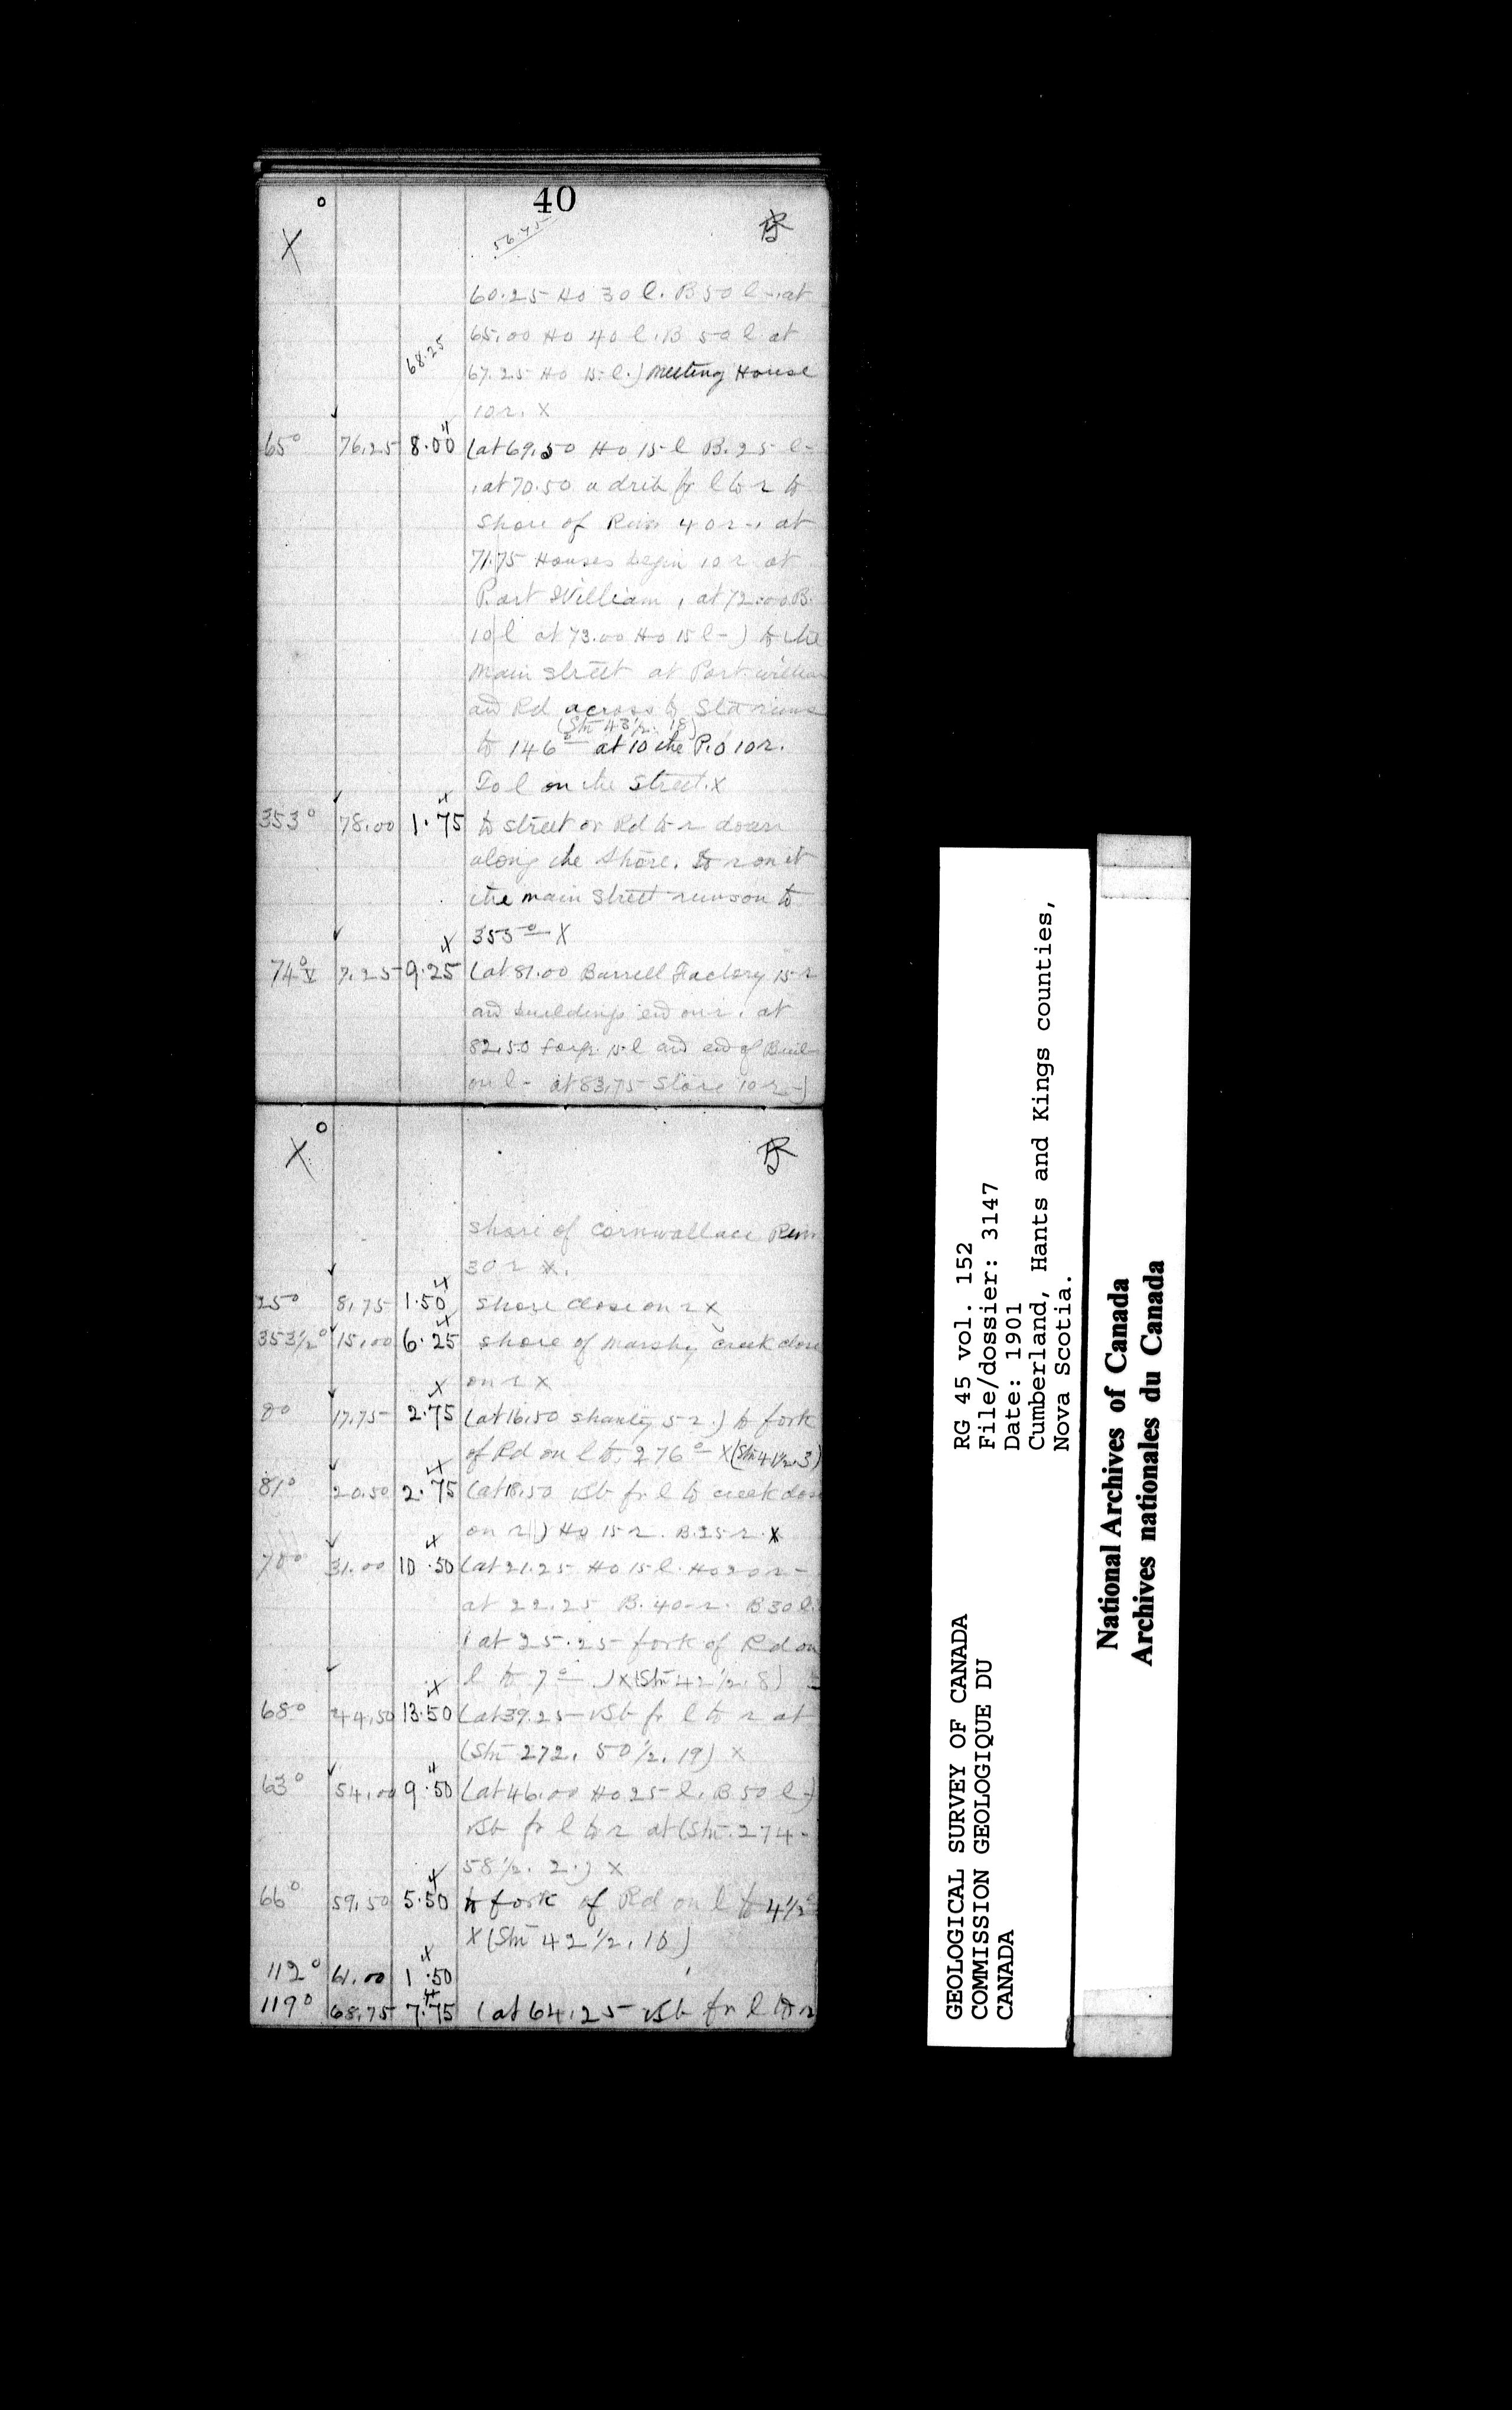 40
56.45
60.25 Ho 30 l. B 50 l -, at
65.00 Ho 40 l. B 50 l at
68.25
67.25 Ho 15 l.) Meeting House
10 r. X
65° 76.25 8.00 (at 69.50 Ho 15 l B. 25 l -
, at 70.50 a drib fr l to r to
Shore of River 40 r -, at
71.75 Houses begin 10 r at
Port William, at 72.00 B.
10 l at 73.00 Ho 15 l -) to the
Main Street at Port William
and Rd across to Sta runs
(Stn 43 1/2. 18)
to 146° at 10 the P.O 10 r.
To l on the Street. X
353° 78.00 1.75 to street or Rd to r down
along the Shore. To r on it
the main Street runs on to
353° X
74° 7.25 9.25 (at 81.00 Barrell Factory 15 r
and buildings end on r. at
82.50 Forge 15 l and end of Buil
on l - at 83.75 Store 10 r -)
Shore of Cornwallace River
30 r X.
25° 8.75 1.50 Shore close on r X
353 1/2° 15.00 6.25 Shore of Marshy creek close
on r X
8° 17.75 2.75 (at 16.50 Shanty 5 r.) to fork
of Rd on l to 276° X (Stn 41 1/2. 3)
81° 20.50 2.75 (at 18.50 vSb fr l to creek close
on r) Ho 15 r. B. 25 r. X
70° 31.00 10.50 (at 21.25 Ho 15 l. Ho 20 r -
at 22.25 B. 40 r. B 30 l.
, at 25.25 fork of Rd on
l to 7° ) X (Stn 42 1/2. 8)
68° 44.50 13.50 (at 39.25 vSb fr l to r at
(Stn 272. 50 1/2. 19) X
63° 54.00 9.50 (at 46.00 Ho 25 l. B 50 l -)
vSb fr l to r at (Stn. 274 -
58 1/2. 2.) X
66° 59.50 5.50 to fork of Rd on l to 4 1/2°
X (Stn 42 1/2. 16)
112° 61.00 1.50
119° 68.75 7.75 (at 64.25 vSb fr l to r
GEOLOGICAL SURVEY OF CANADA
COMMISSION GEOLOGIQUE DU
CANADA
RG 45 vol. 152
File/dossier: 3147
Date: 1901
Cumberland, Hants and Kings counties,
Nova Scotia.
National Archives of Canada
Archives nationales du Canada